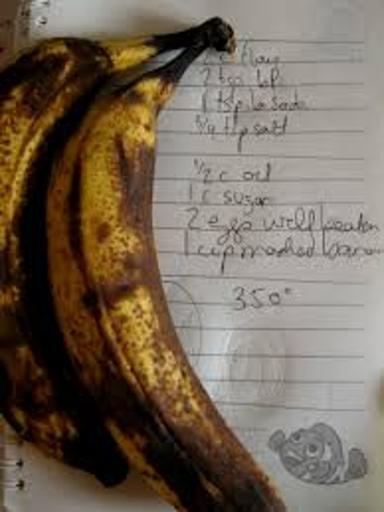 2 c flour
2 tsp b.p.
1 tsp b. soda
3/4 tsp salt
1/2 c oil
1 c sugar
2 eggs well beaten
1 cup mashed banana
350°